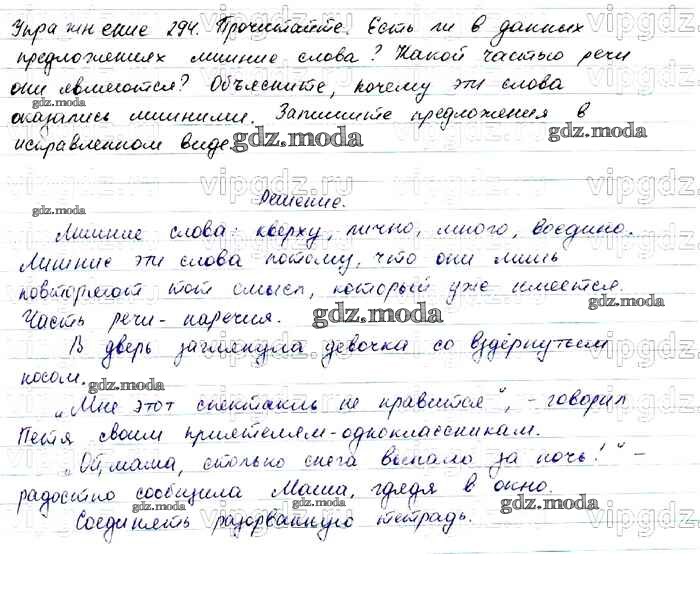 Упражнение 294. Прочитайте. Есть ли в данных
предложениях лишние слова? Какой частью речи
они являются? Объясните, почему эти слова
gdz.moda
оказались лишними. Запишите предложения в
исправленном виде gdz.moda gdz.moda
vipgdz.ru
Решение.
gdz.moda
Лишние слова: кверху, лично, много, воедино.
Лишние эти слова потому, что они лишь
повторяют тот смысл, который уже имеется.
Часть речи - наречия. gdz.moda gdz.moda
В дверь заглянула девочка со вздёрнутым
носом. gdz.moda
„Мне этот спектакль не нравится", - говорил
Петя своим приятелям-одноклассникам.
„Ой, мама, столько снега выпало за ночь!" -
радостно сообщила Маша, глядя в окно.
Соединять разорванную тетрадь. gdz.moda